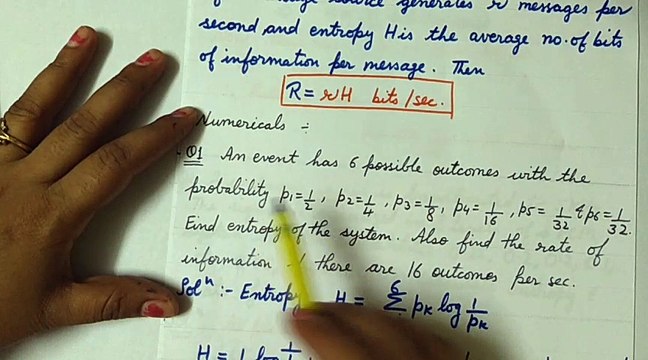 message source generates r messages per
second and entropy H is the average no. of bits
of information per message. Then
R = rH bits/sec.
Numericals ÷
Q1 An event has 6 possible outcomes with the
probability p₁=1/2, p₂=1/4, p₃=1/8, p₄=1/16, p₅=1/32 & p₆=1/32.
Find entropy of the system. Also find the rate of
information if there are 16 outcomes per sec.
Solⁿ :- Entropy H = 6 Σ pₖ log 1/pₖ